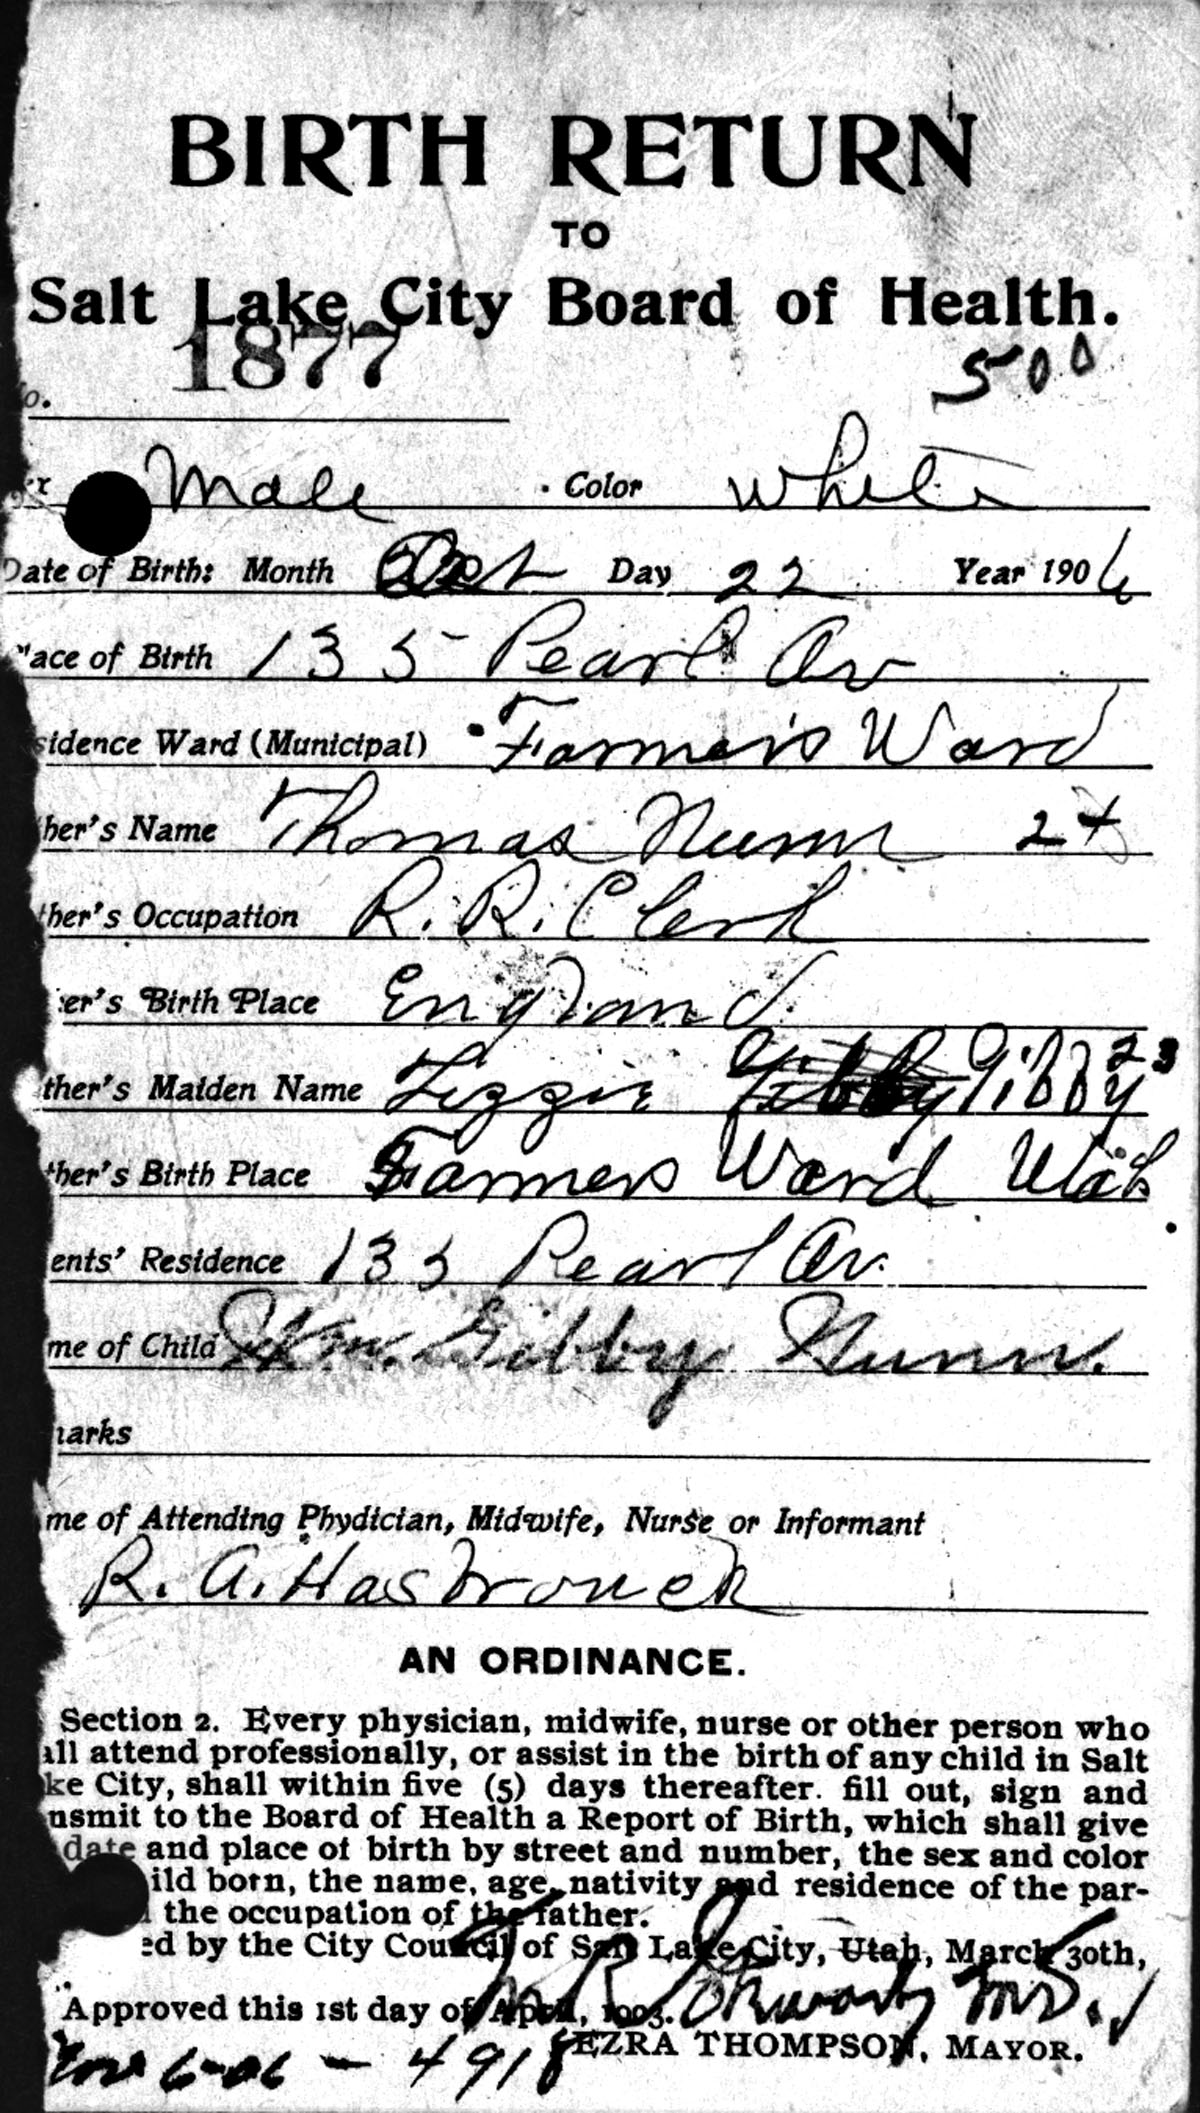 BIRTH RETURN
TO
Salt Lake City Board of Health.
1877
500
o.
Male Color White
Date of Birth: Month Oct Day 22 Year 1906
ace of Birth 135 Pearl Av
sidence Ward (Municipal) Farmers Ward
her's Name Thomas Nunn 24
ther's Occupation R. R. Clerk
er's Birth Place England
ther's Maiden Name Lizzie Gibby Gibby 23
ther's Birth Place Farmers Ward Utah
ents' Residence 135 Pearl Av.
me of Child Wm. Gibby Nunn.
arks
me of Attending Phydician, Midwife, Nurse or Informant
R. A. Hasbrouck
AN ORDINANCE.
Section 2. Every physician, midwife, nurse or other person who
all attend professionally, or assist in the birth of any child in Salt
ke City, shall within five (5) days thereafter. fill out, sign and
nsmit to the Board of Health a Report of Birth, which shall give
date and place of birth by street and number, the sex and color
ild born, the name, age, nativity and residence of the par-
the occupation of the father.
ed by the City Council of Salt Lake City, Utah, March 30th,
Approved this 1st day of April, 1903.
EZRA THOMPSON, MAYOR.
Nov 6-06 - 4918